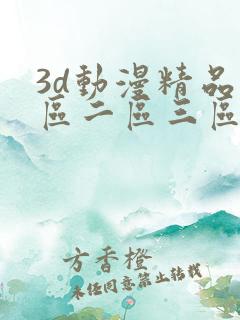 3d動漫精品
區二區三區
方香橙
未经同意禁止转载